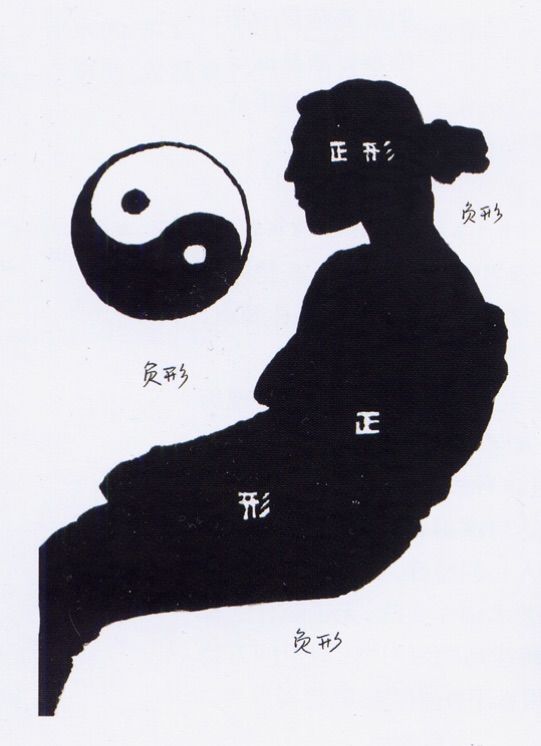 正形
负形
负形
正
形
负形